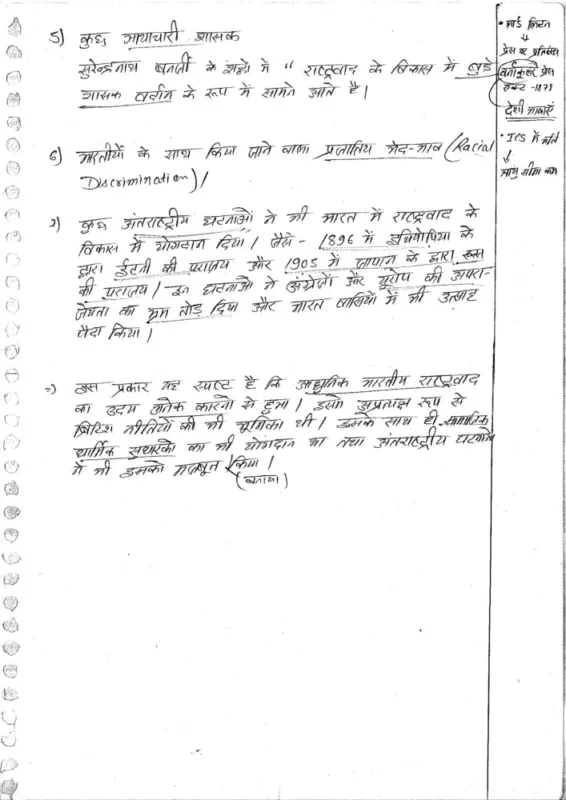 5) कुछ अत्याचारी शासक
सुरेन्द्रनाथ बनर्जी के शब्दों में "राष्ट्रवाद के विकास में बुरे
शासक वरदान के रूप में सामने आते है।
6) भारतीयों के साथ किया जाने वाला प्रजातिय भेद-भाव (Racial
Discrimination)।
कुछ अंतराष्ट्रीय घटनाओं ने भी भारत में राष्ट्रवाद के
विकास में योगदान दिया। जैसे- 1896 में इथियोपिया के
द्वारा ईटली की पराजय और 1905 में जापान के द्वारा रूस
की पराजय। इन घटनाओं ने अंग्रेजों और यूरोप की अपरा-
जेयता का भ्रम तोड़ दिया और भारत वासियों में भी उत्साह
पैदा किया।
=) इस प्रकार यह स्पष्ट है कि आधुनिक भारतीय राष्ट्रवाद
का उदय अनेक कारणो से हुआ। इसमे अप्रत्यक्ष रूप से
ब्रिटिश नीतियों की भी भूमिका थी। इसके साथ ही सामाजिक
धार्मिक सुधारकों का भी योगदान था तथा अंतराष्ट्रीय घटनाओं
ने भी इसको मजबूत किया।
(बनाया)
• लार्ड लिटन
↓
प्रेस पर प्रतिबंध
वर्नाकुलर प्रेस
एक्ट-1878
देशी भाषाएं
• ICS में
↓
आयु सीमा कम